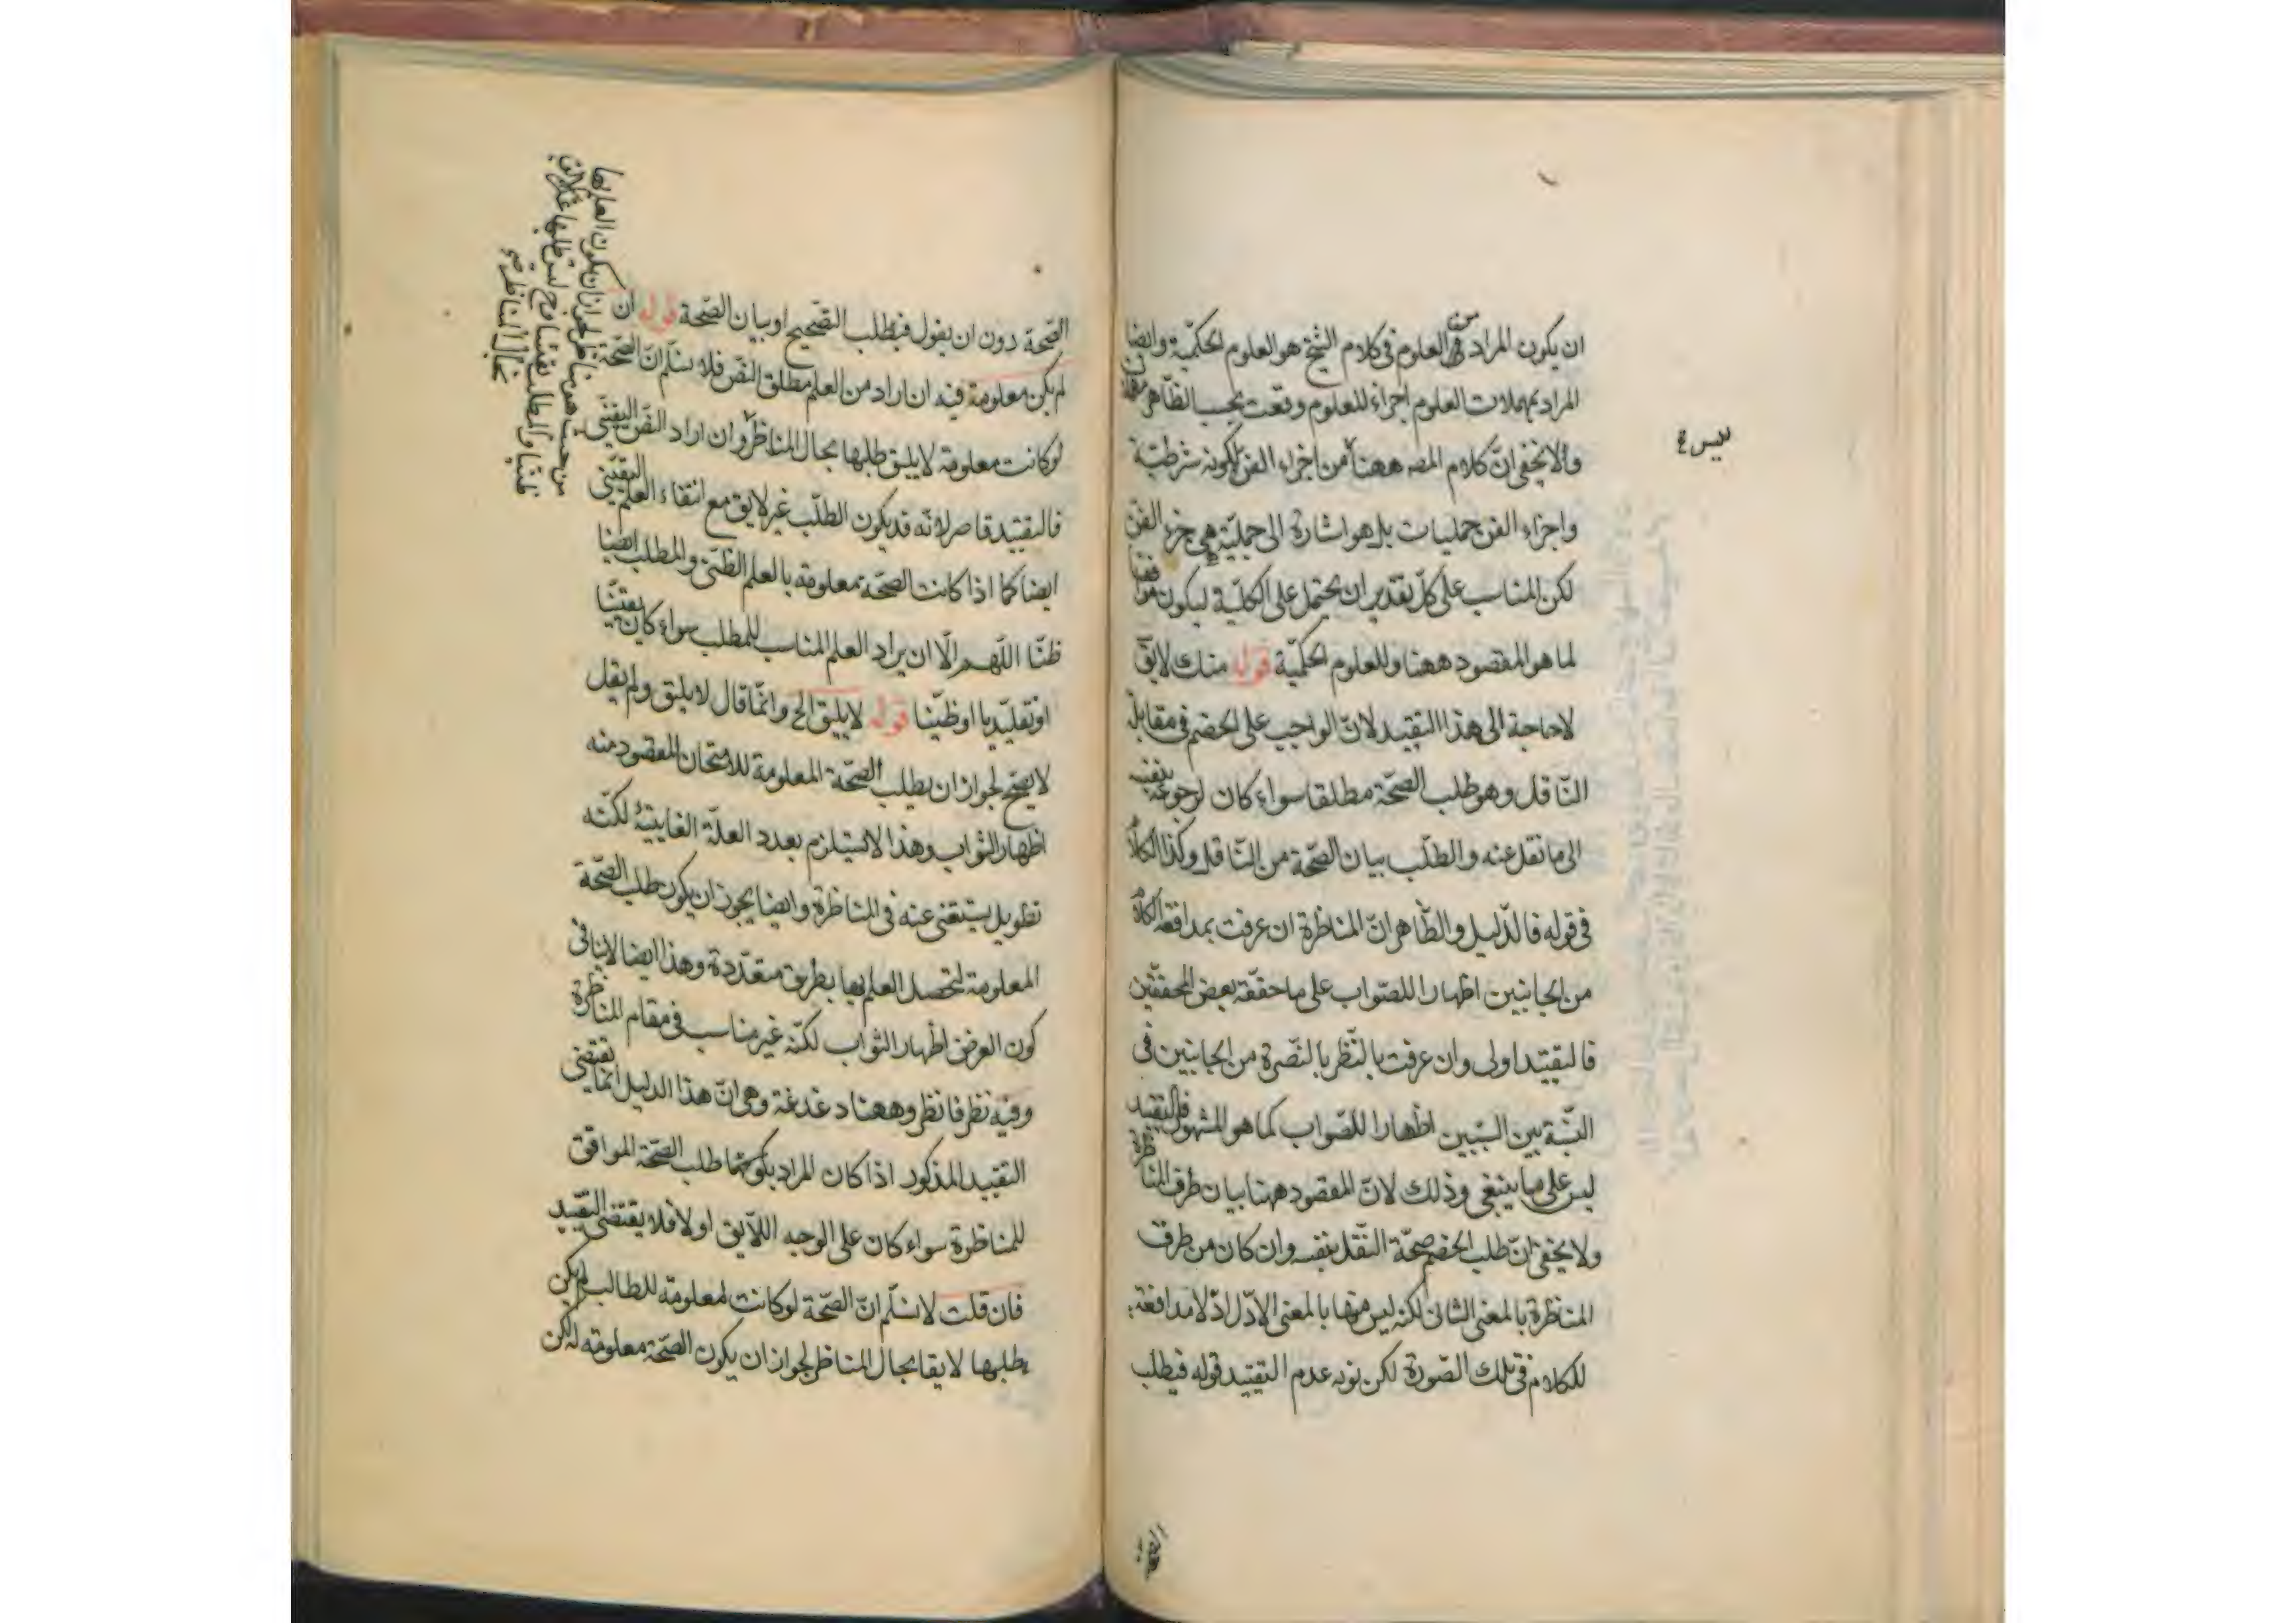 ان يكون المراد من العلوم فى كلام الشيخ هو العلوم الحكمية وايضا
المراد بمهملات العلوم اجزاء للعلوم وقعت بحسب الظاهر مهملة
ولا يخفى ان كلام المصه ههنا من اجزاء الفن لكونه شرطية
واجزاء الفن حمليات بل هو اشارة الى حملية هى جزء الفن
لكن المناسب على كل تقدير ان يحتمل على الكلية ليكون موافقا
لما هو المقصود ههنا وللعلوم الحكمية قوله منك لايق
لا حاجة الى هذا التقييد لان الواجب على الخصم فى مقابلة
الناقل وهو طلب الصحة مطلقا سواء كان لرجوعه بنفسه
الى ما نقل عنه والطلب بيان الصحة من الناقل وكذا الكلام
فى قوله فالدليل والظاهر ان المناظرة ان عرفت بمدافعة الكلام
من الجانبين اظهارا للصواب على ما حققه بعض المحققين
فالتقييد اولى وان عرفت بالنظر بالنصرة من الجانبين فى
النسبة بين الشيئين اظهارا للصواب كما هو المشهور فالتقييد
ليس على ما ينبغى وذلك لان المقصود ههنا بيان طرف المناظرة
ولا يخفى ان طلب الخصم صحة النقل بنفسه وان كان من طرف
المناظرة بالمعنى الثانى لكنه ليس منها بالمعنى الاول اذ لا مدافعة
للكلام فى تلك الصورة لكن نوبه عدم التقييد قوله فيطلب
الصحة دون ان يقول فيطلب التصحيح او بيان الصحة قوله ان
لم يكن معلومة فيه ان اراد من العلم مطلق التص فلا نسلم ان الصحة
لو كانت معلومة لا يليق طلبها بحال المناظر وان اراد التص اليقينى
فالتقييد قاصر لانه قد يكون الطلب غير لايق مع انتفاء العلم اليقينى
ايضا كما اذا كانت الصحة معلومة بالعلم الظنى والمطلب ايضا
ظنا اللهم الا ان يراد العلم المناسب للمطلب سواء كان يقينيا
او تقليديا او ظنيا قوله لا يليق الخ وانما قال لا يليق ولم يقل
لا يصح لجواز ان يطلب الصحة المعلومة للامتحان المقصود منه
اظهار الثواب وهذا لا يستلزم بعدد العلة الغايية لكنه
تطويل يستغنى عنه فى المناظرة وايضا يجوز ان يكون طلب الصحة
المعلومة لتحصل العلم بها بطريق متعددة وهذا ايضا لا ينافى
كون الغرض اظهار الثواب لكنه غير مناسب فى مقام المناظرة
وفيه نظر فانظر وههنا دغدغة وهى ان هذا الدليل انما يقتضى
التقييد المذكور اذا كان المراد طلب الصحة الموافق
للمناظرة سواء كان على الوجه اللايق او لا فلا يقتضى التقييد
فان قلت لا نسلم ان الصحة لو كانت معلومة للطالب لم يكن
طلبها لايقا بحال المناظر لجواز ان يكون الصحة معلومة لكن